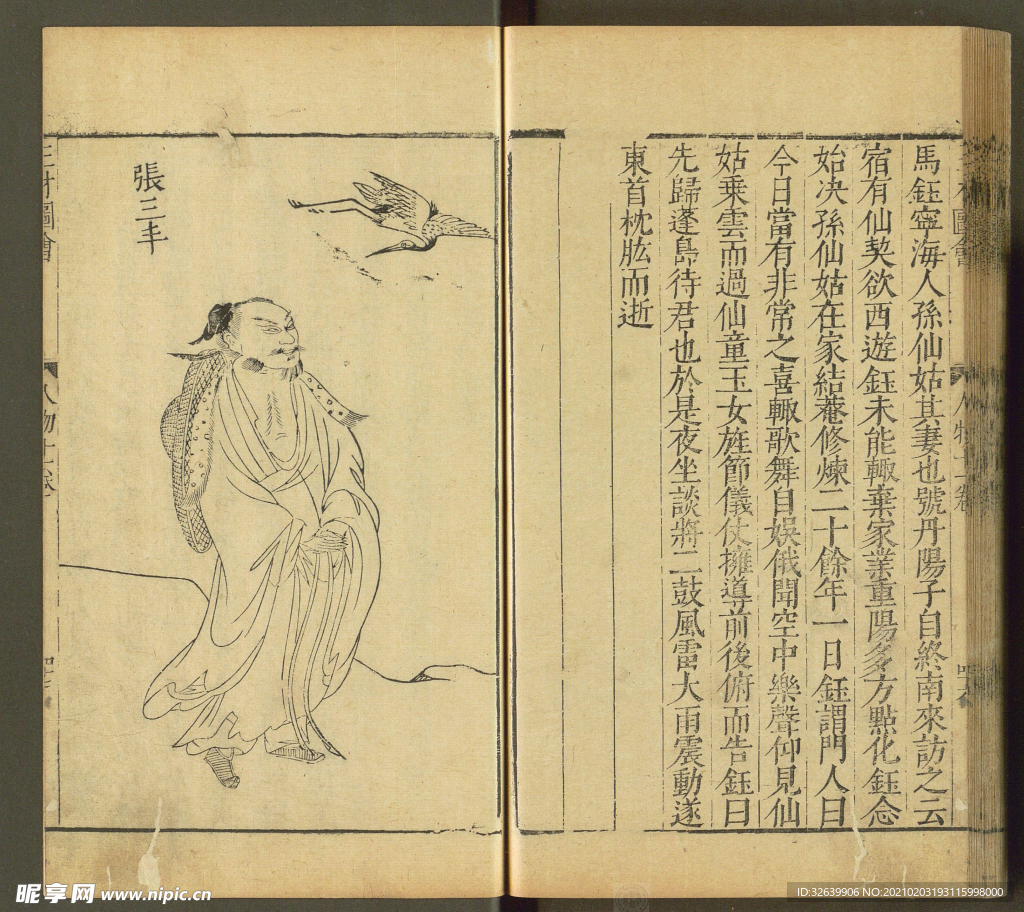 馬鈺寧海人孫仙姑其妻也號丹陽子自終南來訪之云
宿有仙契欲西遊鈺未能輒棄家業重陽多方點化鈺念
始决孫仙姑在家結菴修煉二十餘年一日鈺謂門人曰
今日當有非常之喜輒歌舞自娛俄聞空中樂聲仰見仙
姑乘雲而過仙童玉女旌節儀仗擁導前後俯而告鈺曰
先歸蓬島待君也於是夜坐談將二鼓風雷大雨震動遂
東首枕肱而逝
張三丰
三才圖會
人物十一卷
昵享网 www.nipic.cn
ID:32639906 NO:20210203193115998000